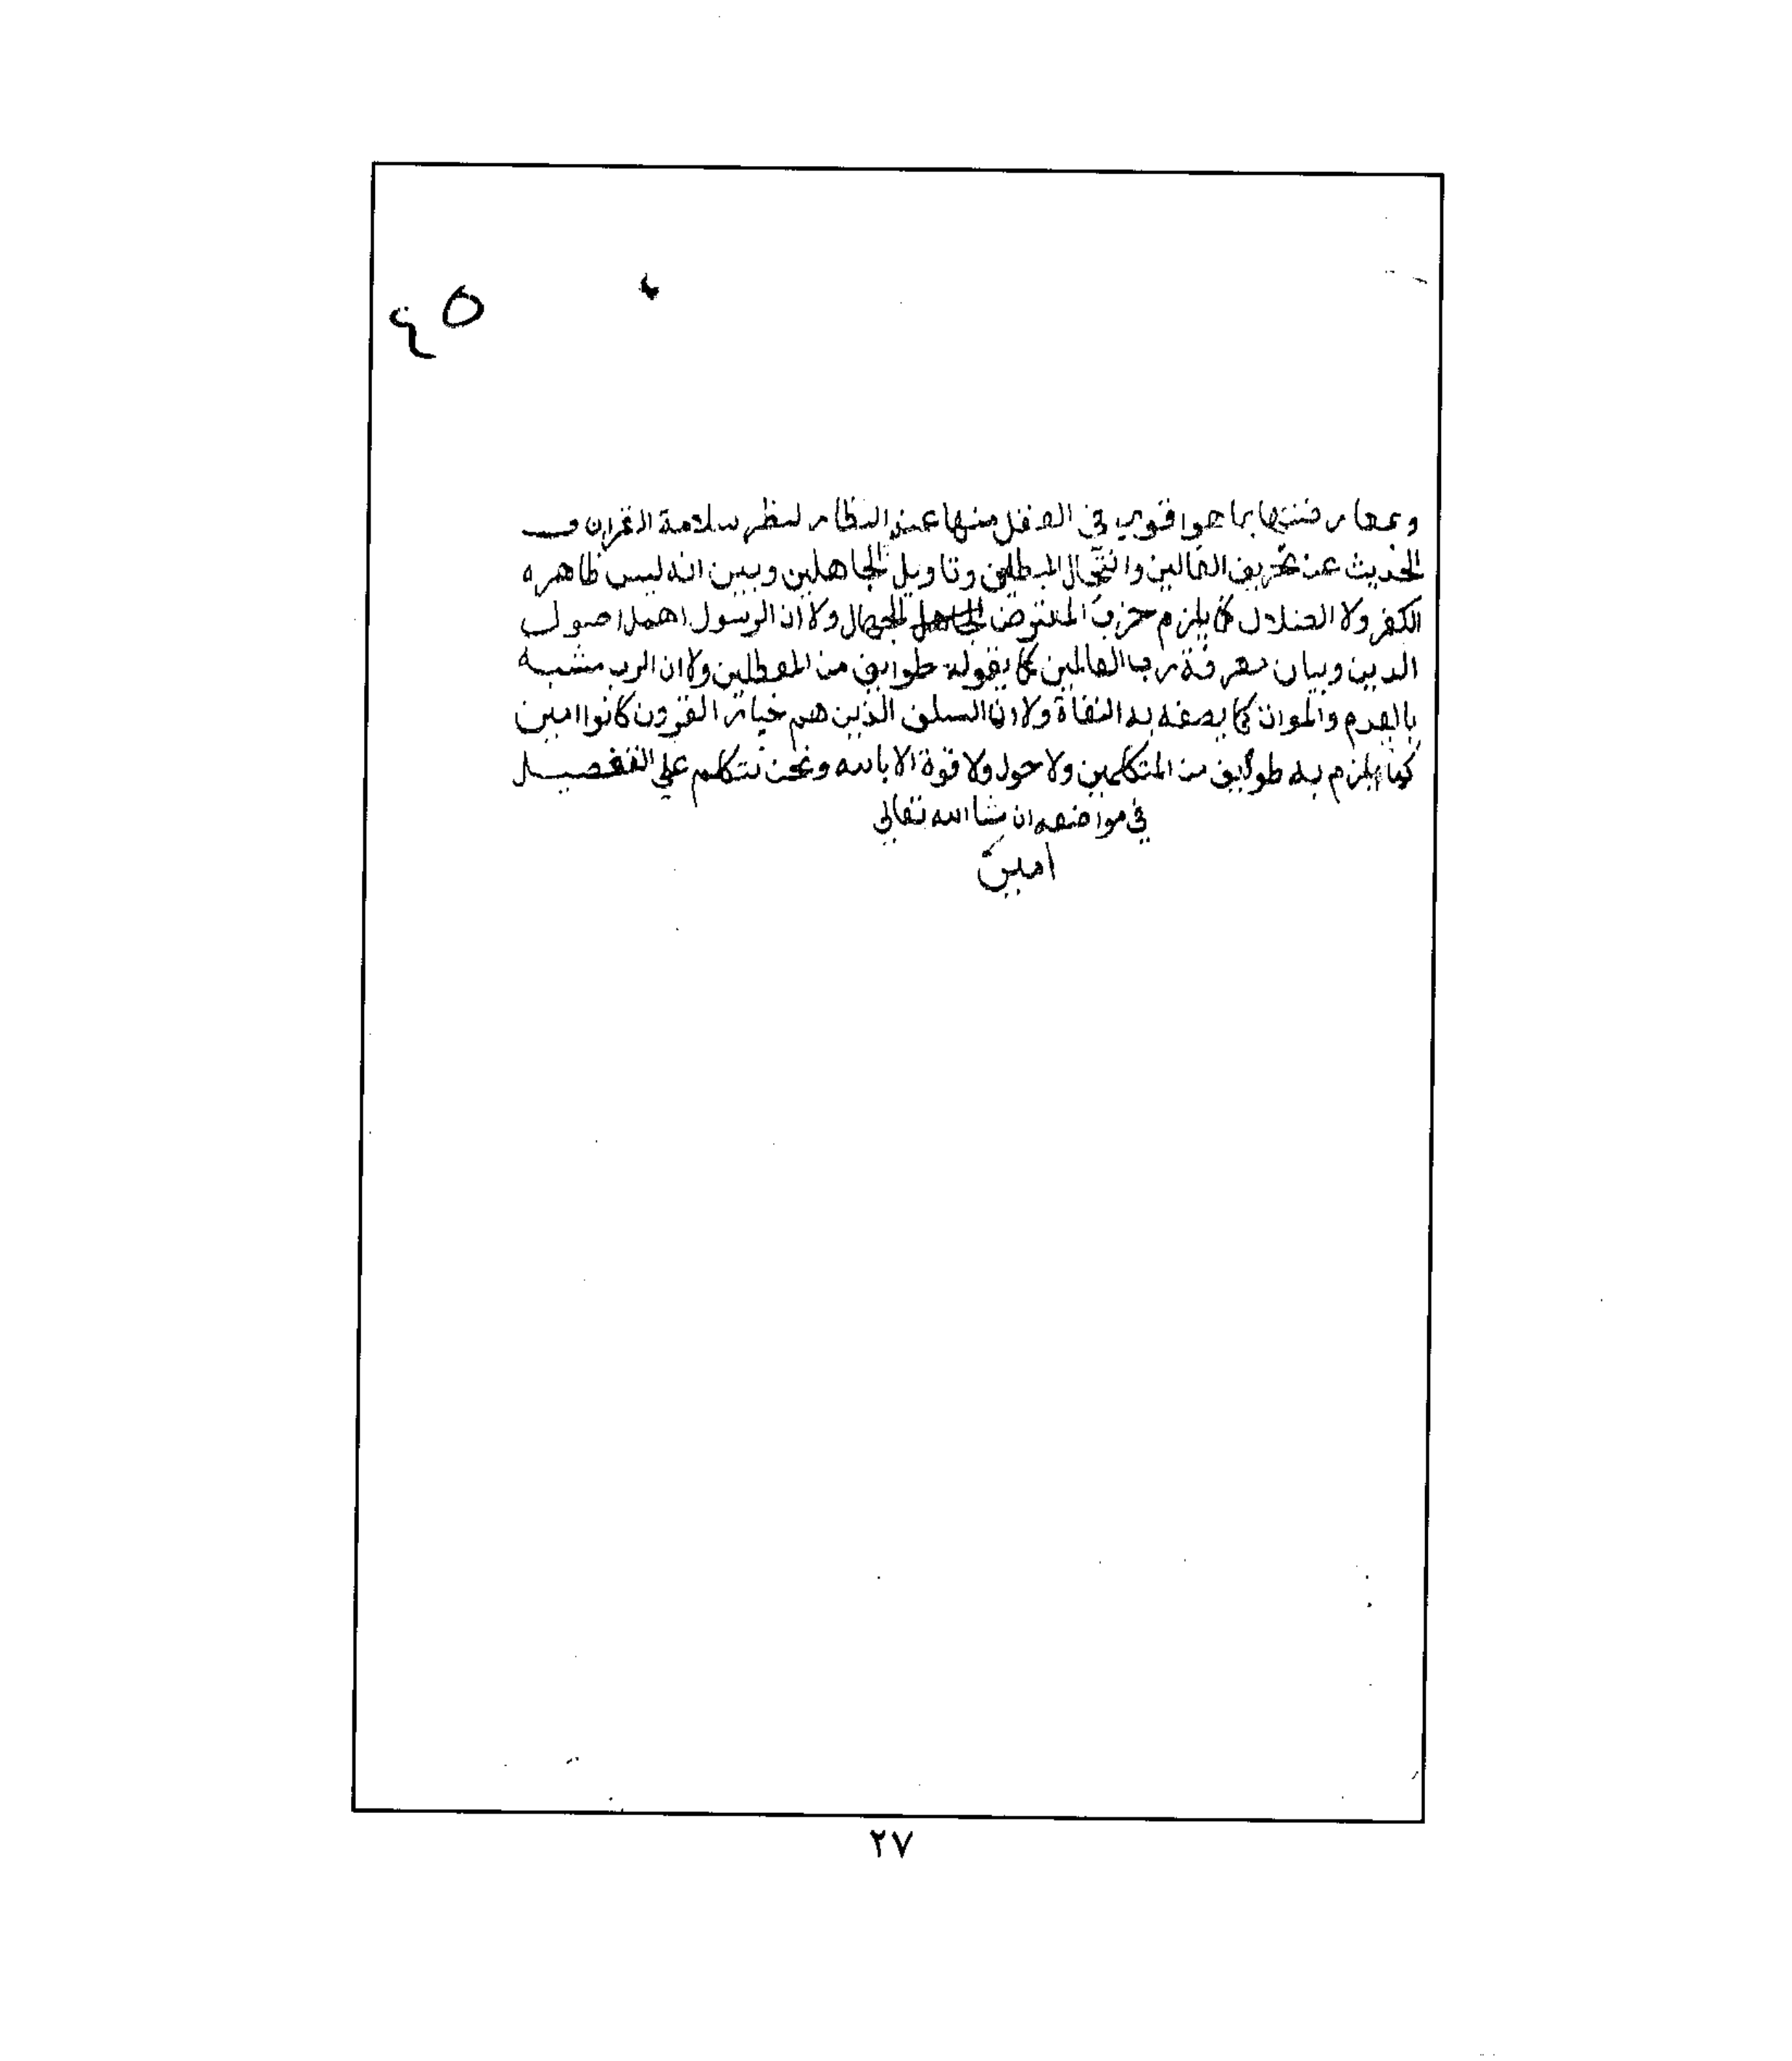 ٤٥
وبمعارضتها بما هو اقوي في العقل منها عند النظار ليظهر سلامة القران و
الحديث عن تحريف الغالين وانتحال المبطلين وتاويل الجاهلين ويبين انه ليس ظاهره
الكفر ولا الضلال كما يلزم حزب المعترض الجهال ولا ان الرسول اهمل اصول
الدين وبيان معرفة رب العالمين كما يقوله طوايف من المعطلين ولا ان الرب مشبه
بالعدم والموات كما يصفه به النفاة ولا ان السلف الذين هم خيار القرون كانوا اميين
كما يلزم به طوايف من المتكلمين ولا حول ولا قوة الا بالله ونحن نتكلم علي التفصيل
في مواضعه ان شا الله تعالي
امين
٢٧